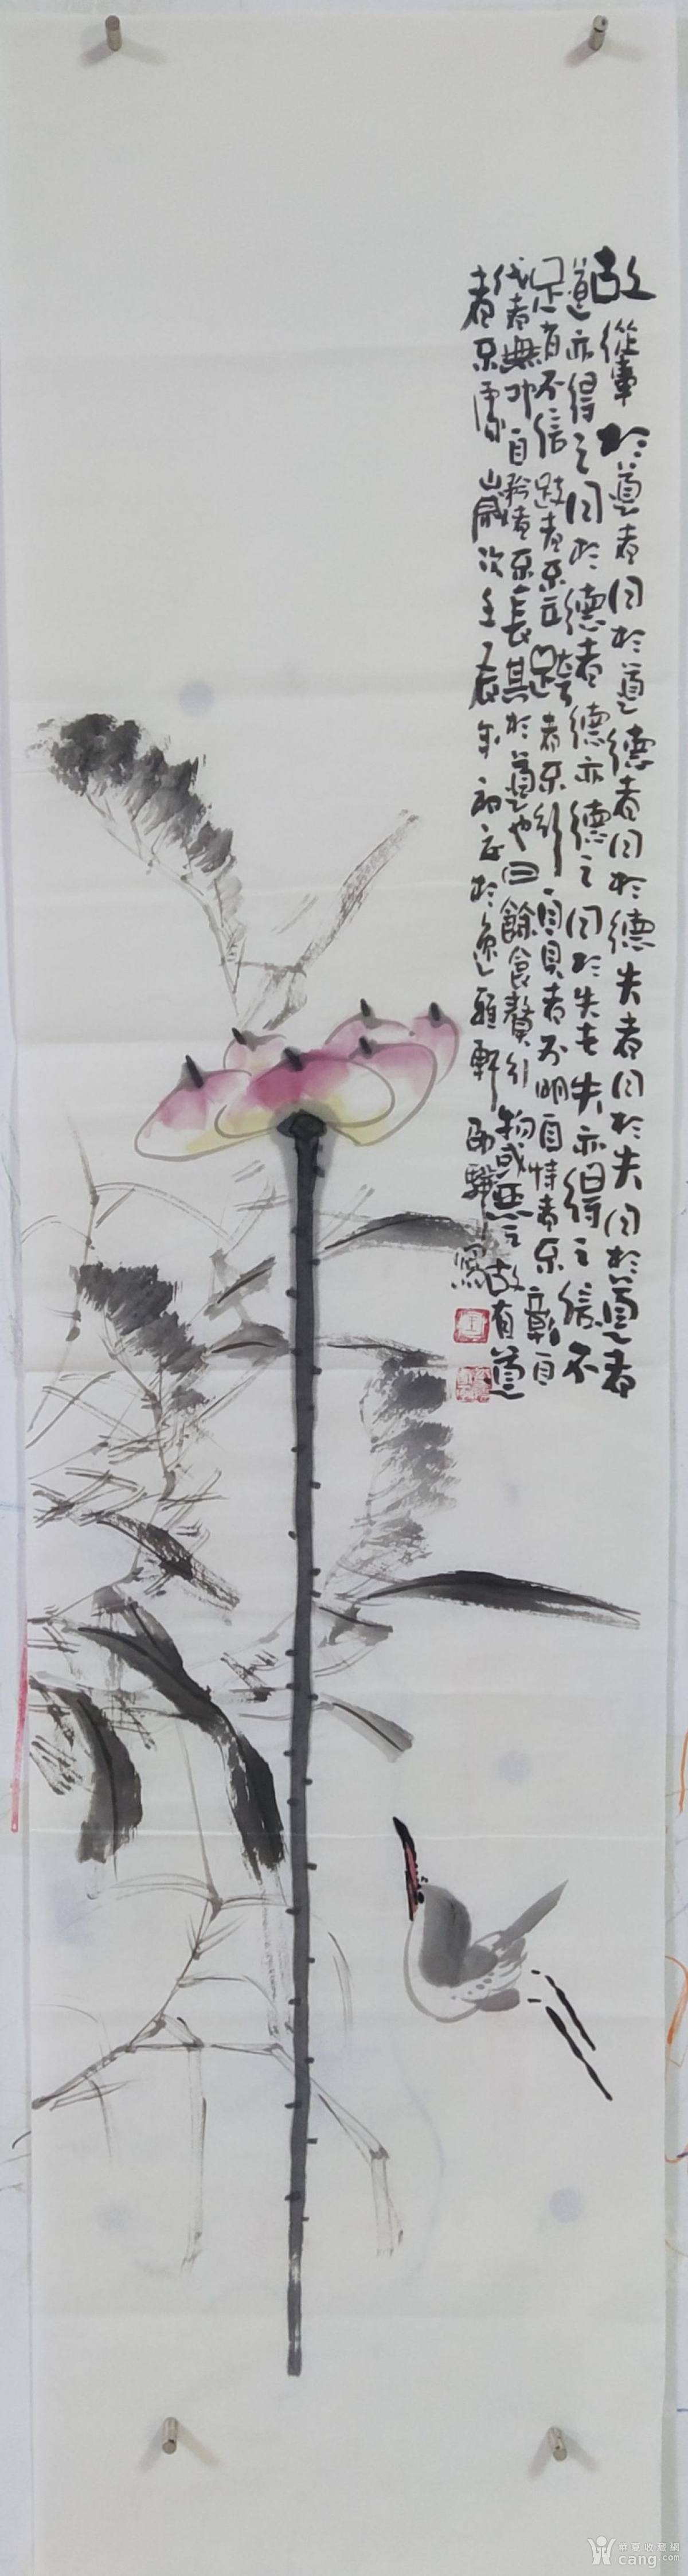 故從事於道者同於道德者同於德失者同於失同於道者
道亦得之同於德者德亦德之同於失者失亦得之信不
足有不信跂者不立跨者不行自見者不明自恃者不彰自
伐者無功自矜者不長其於道也曰餘食贅行物或惡之故有道
者不處歲次壬辰年初於逸雅軒寫
華夏收藏網
cang.com